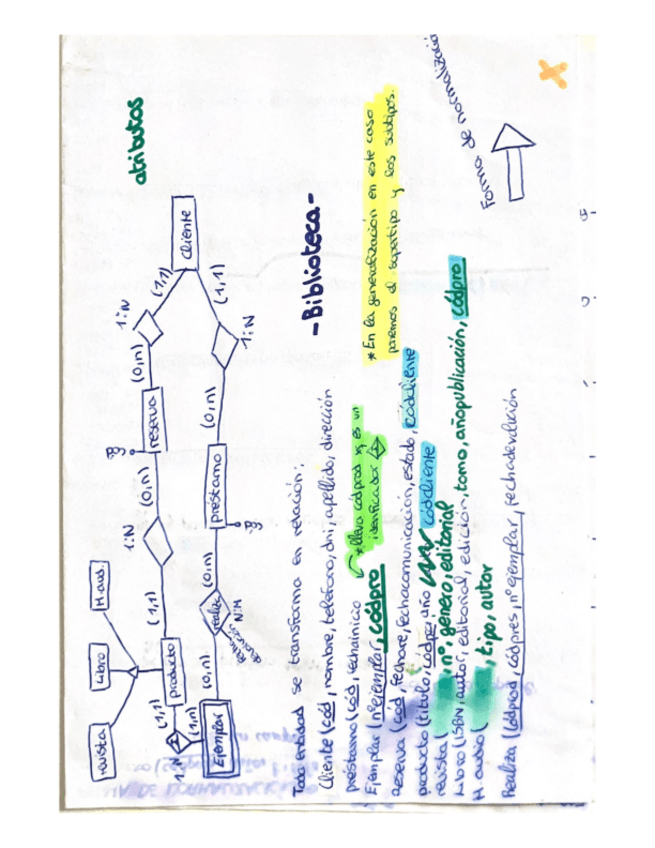 atributos
revista
Libro
M.aud
producto
(1,1)
(1,1)
(1,n)
1:N
I
Ejemplar
(0,n)
realiza
N:M
(0,n)
préstamo
(0,n)
1:N
(1,1)
cliente
(1,1)
1:N
(0,n)
reserva
(0,n)
1:N
(1,1)
-Biblioteca-
Toda entidad se transforma en relación:
Cliente (cód, nombre, teléfono, dni, apellido, dirección
préstamo (cód, fechainicio
*lleva códprod xq es un
identificador
Ejemplar (nºejemplar, códpro
Reserva (cód, fechare, fechacomunicación, estado, códcliente
producto (título, códpro, año códcliente
revista ( , nº, género, editorial
Libro (ISBN, autor, editorial, edición, tomo, añopublicación, códpro
M. audio ( , tipo, autor
Realiza (códprod, códpres, nºejemplar, fechadevolución
*En la generalización en este caso
ponemos el supertipo y los subtipos.
Forma de normalización